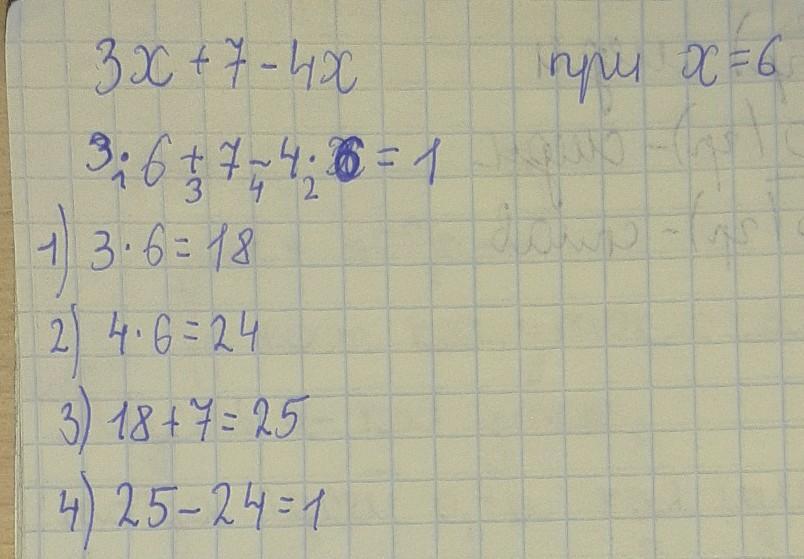 3x + 7 - 4x при x = 6
3 · 6 + 7 - 4 · 6 = 1
1 3 4 2
1) 3 · 6 = 18
2) 4 · 6 = 24
3) 18 + 7 = 25
4) 25 - 24 = 1